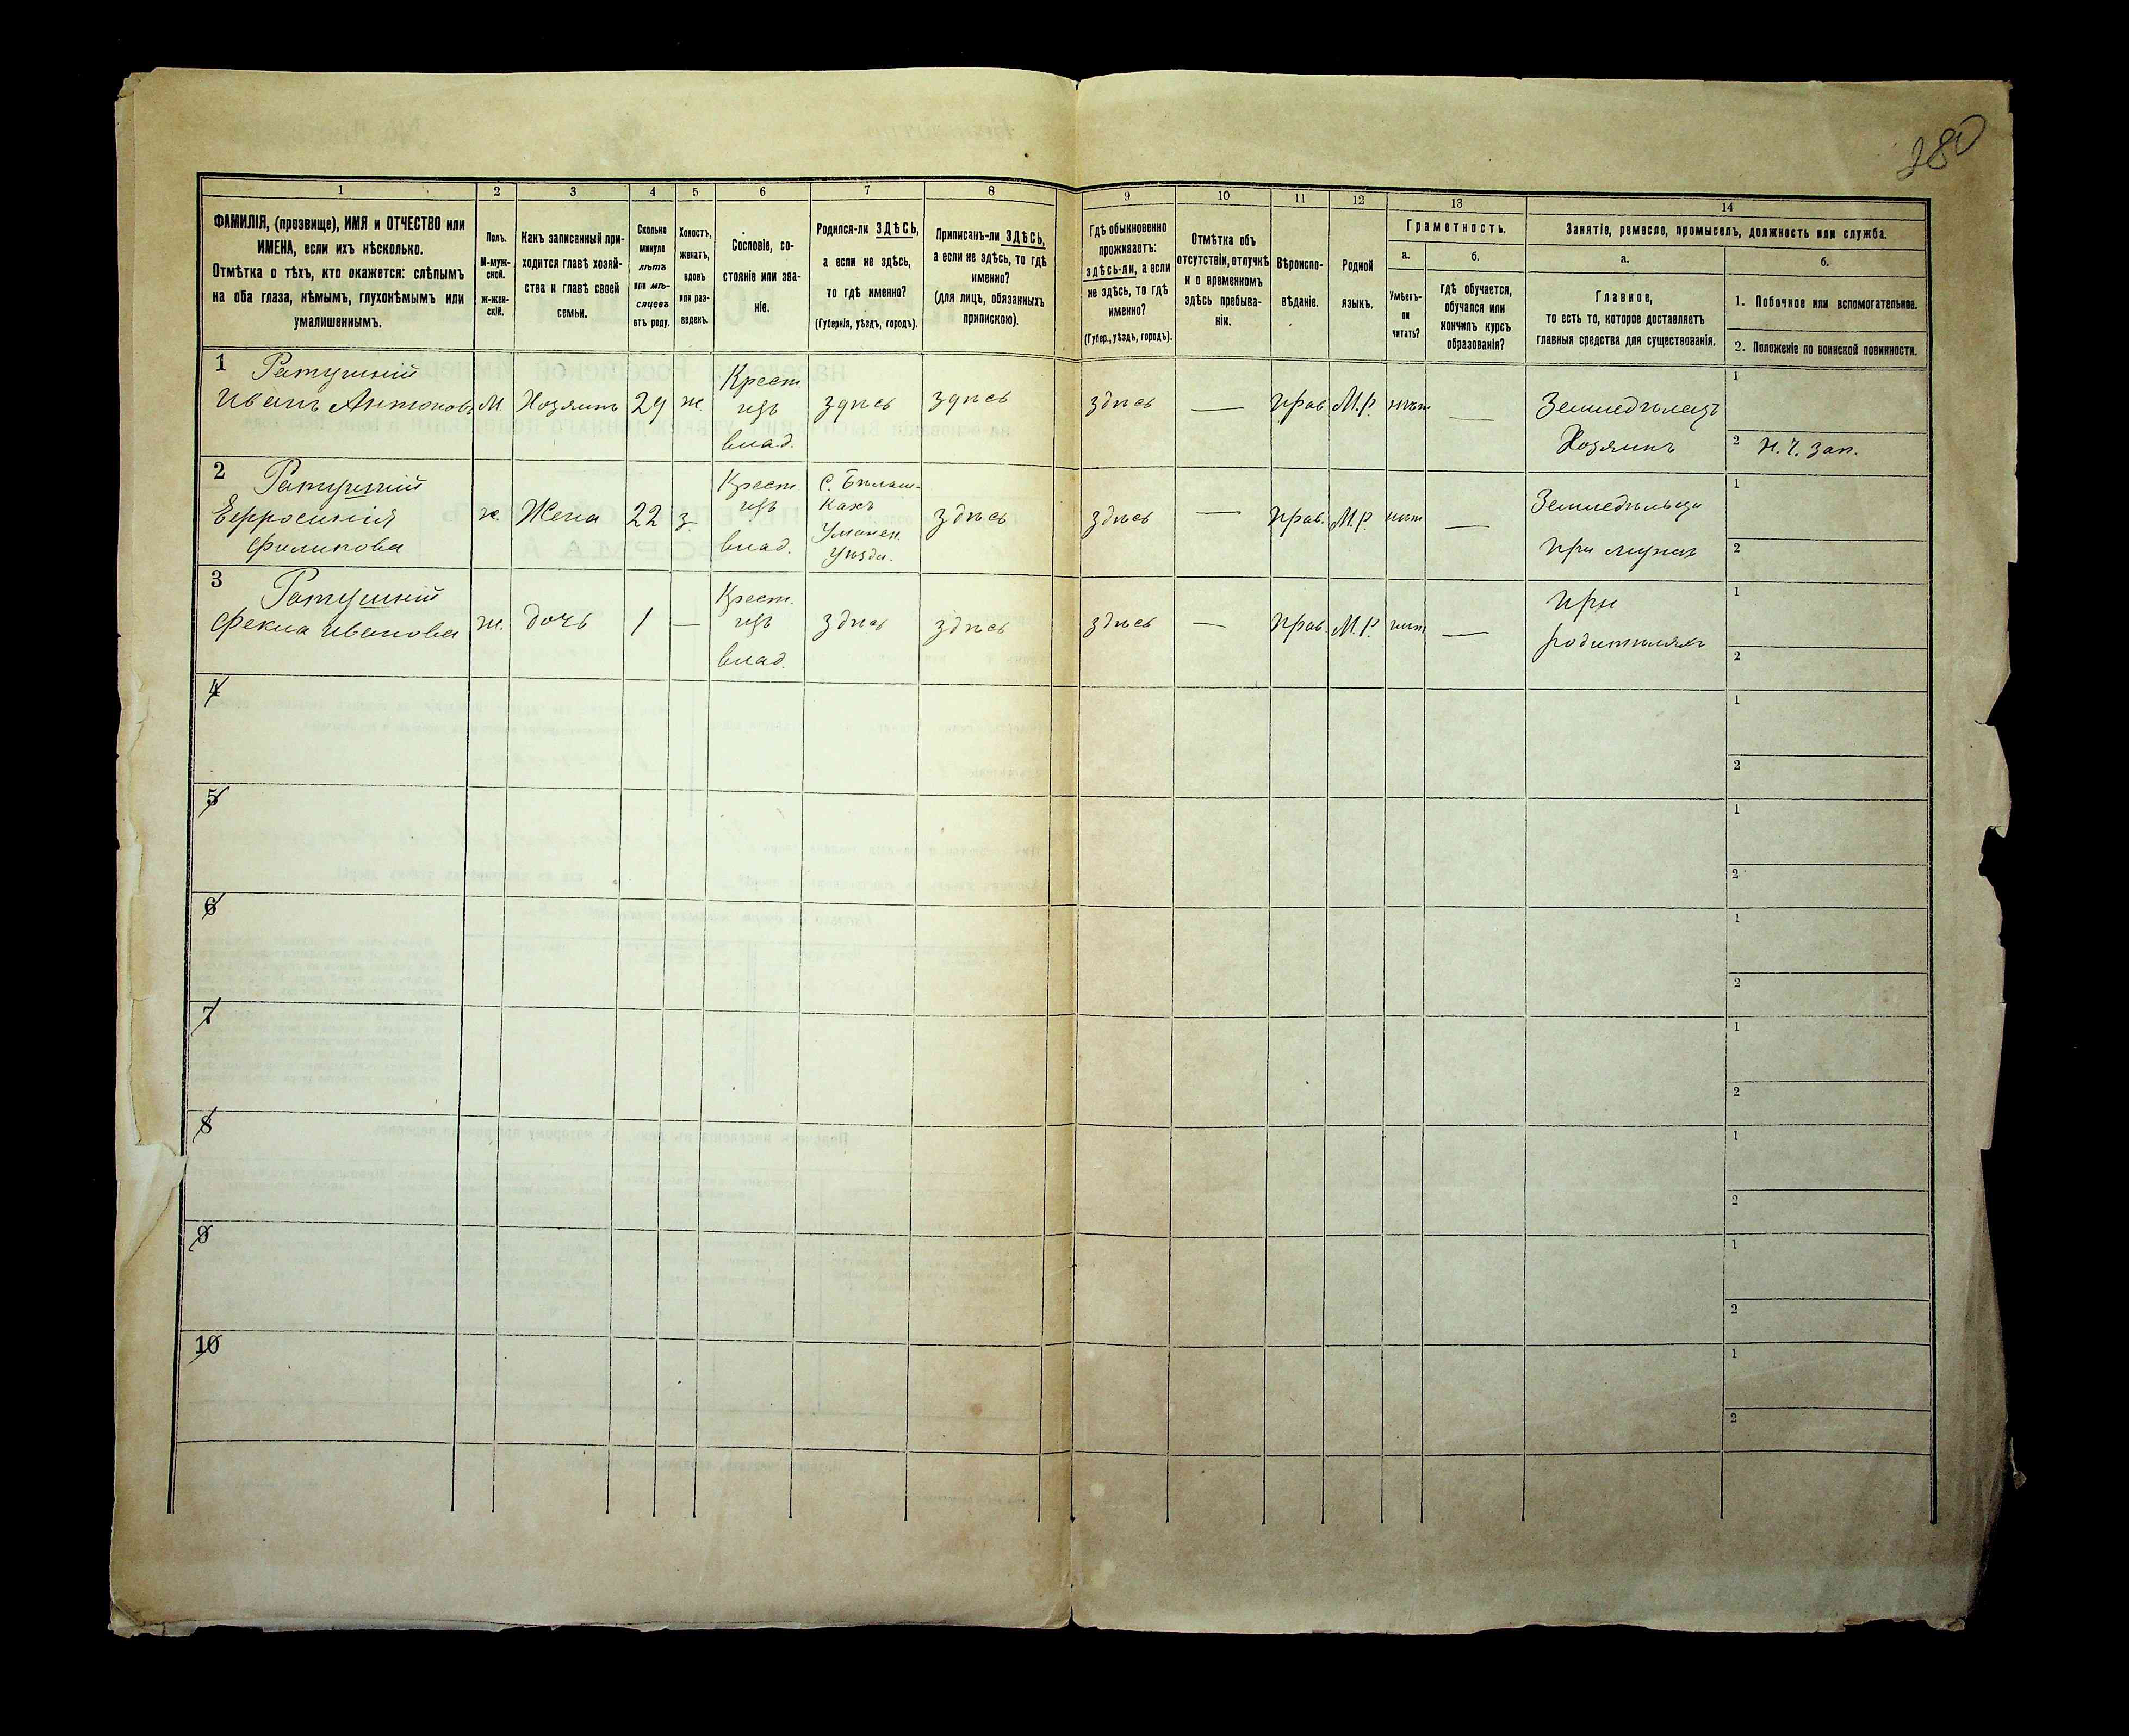 280
1
ФАМИЛІЯ, (прозвище), ИМЯ и ОТЧЕСТВО или
ИМЕНА, если ихъ нѣсколько.
Отмѣтка о тѣхъ, кто окажется: слѣпымъ
на оба глаза, нѣмымъ, глухонѣмымъ или
умалишеннымъ.
2
Полъ.
М-муж-
ской.
ж-жен-
скій.
3
Какъ записанный при-
ходится главѣ хозяй-
ства и главѣ своей
семьи.
4
Сколько
минуло
лѣтъ
или мѣ-
сяцевъ
отъ роду.
5
Холостъ,
женатъ,
вдовъ
или раз-
веденъ.
6
Сословіе, со-
стояніе или зва-
ніе.
7
Родился-ли ЗДѢСЬ,
а если не здѣсь,
то гдѣ именно?
(Губернія, уѣздъ, городъ).
8
Приписанъ-ли ЗДѢСЬ,
а если не здѣсь, то гдѣ
именно?
(для лицъ, обязанныхъ
припискою).
9
Гдѣ обыкновенно
проживаетъ:
здѣсь-ли, а если
не здѣсь, то гдѣ
именно?
(Губер., уѣздъ, городъ).
10
Отмѣтка объ
отсутствіи, отлучкѣ
и о временномъ
здѣсь пребыва-
ніи.
11
Вѣроиспо-
вѣданіе.
12
Родной
языкъ.
13
Грамотность.
а.
Умѣетъ-
ли
читать?
б.
гдѣ обучается,
обучался или
кончилъ курсъ
образованія?
14
Занятіе, ремесло, промыселъ, должность или служба.
а.
Главное,
то есть то, которое доставляетъ
главныя средства для существованія.
б.
1. Побочное или вспомогательное.
2. Положеніе по воинской повинности.
1 Ратушній
Иванъ Антоновъ
М.
Хозяинъ
29
ж.
Крест.
изъ
влад.
здѣсь
здѣсь
здѣсь
—
прав
М.Р.
нѣт
—
Земледѣлецъ
Хозяинъ
1
2 Н. Ч. зап.
2 Ратушній
Ефросинія
Филипова
ж.
Жена
22
з.
Крест
изъ
влад.
С. Бѣлаш-
кахъ
Уманск.
Уѣзда.
здѣсь
здѣсь
—
прав.
М.Р.
нѣт
—
Земледѣльца
при мужѣ
1
2
3 Ратушній
Фекла Иванова
ж.
дочь
1
—
Крест.
изъ
влад.
здѣсь
здѣсь
здѣсь
—
прав.
М.Р.
нѣт
—
при
родителяхъ
1
2
4
1
2
5
1
2
6
1
2
7
1
2
8
1
2
9
1
2
10
1
2